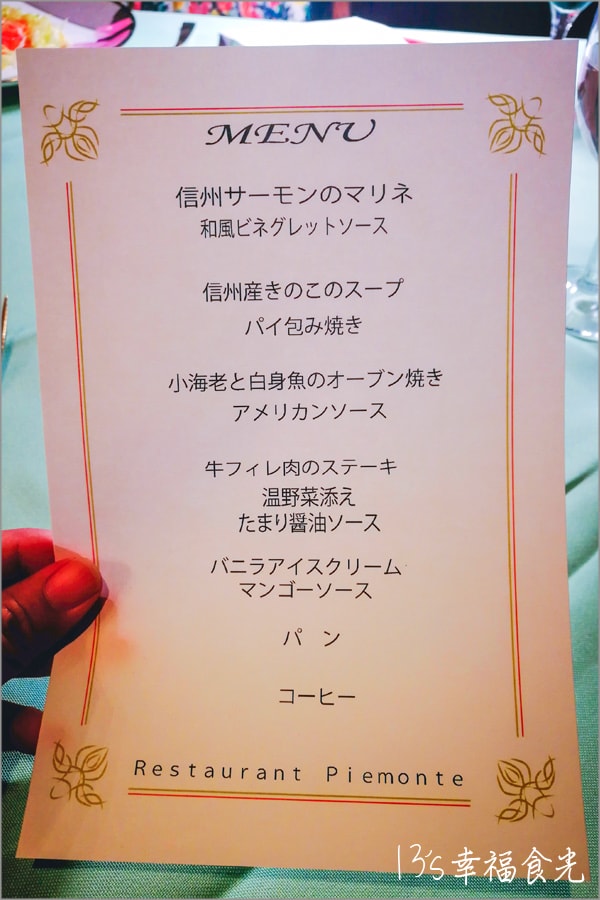 MENU
信州サーモンのマリネ
和風ビネグレットソース
信州産きのこのスープ
パイ包み焼き
小海老と白身魚のオーブン焼き
アメリカンソース
牛フィレ肉のステーキ
温野菜添え
たまり醤油ソース
バニラアイスクリーム
マンゴーソース
パン
コーヒー
Restaurant Piemonte
13's幸福食光